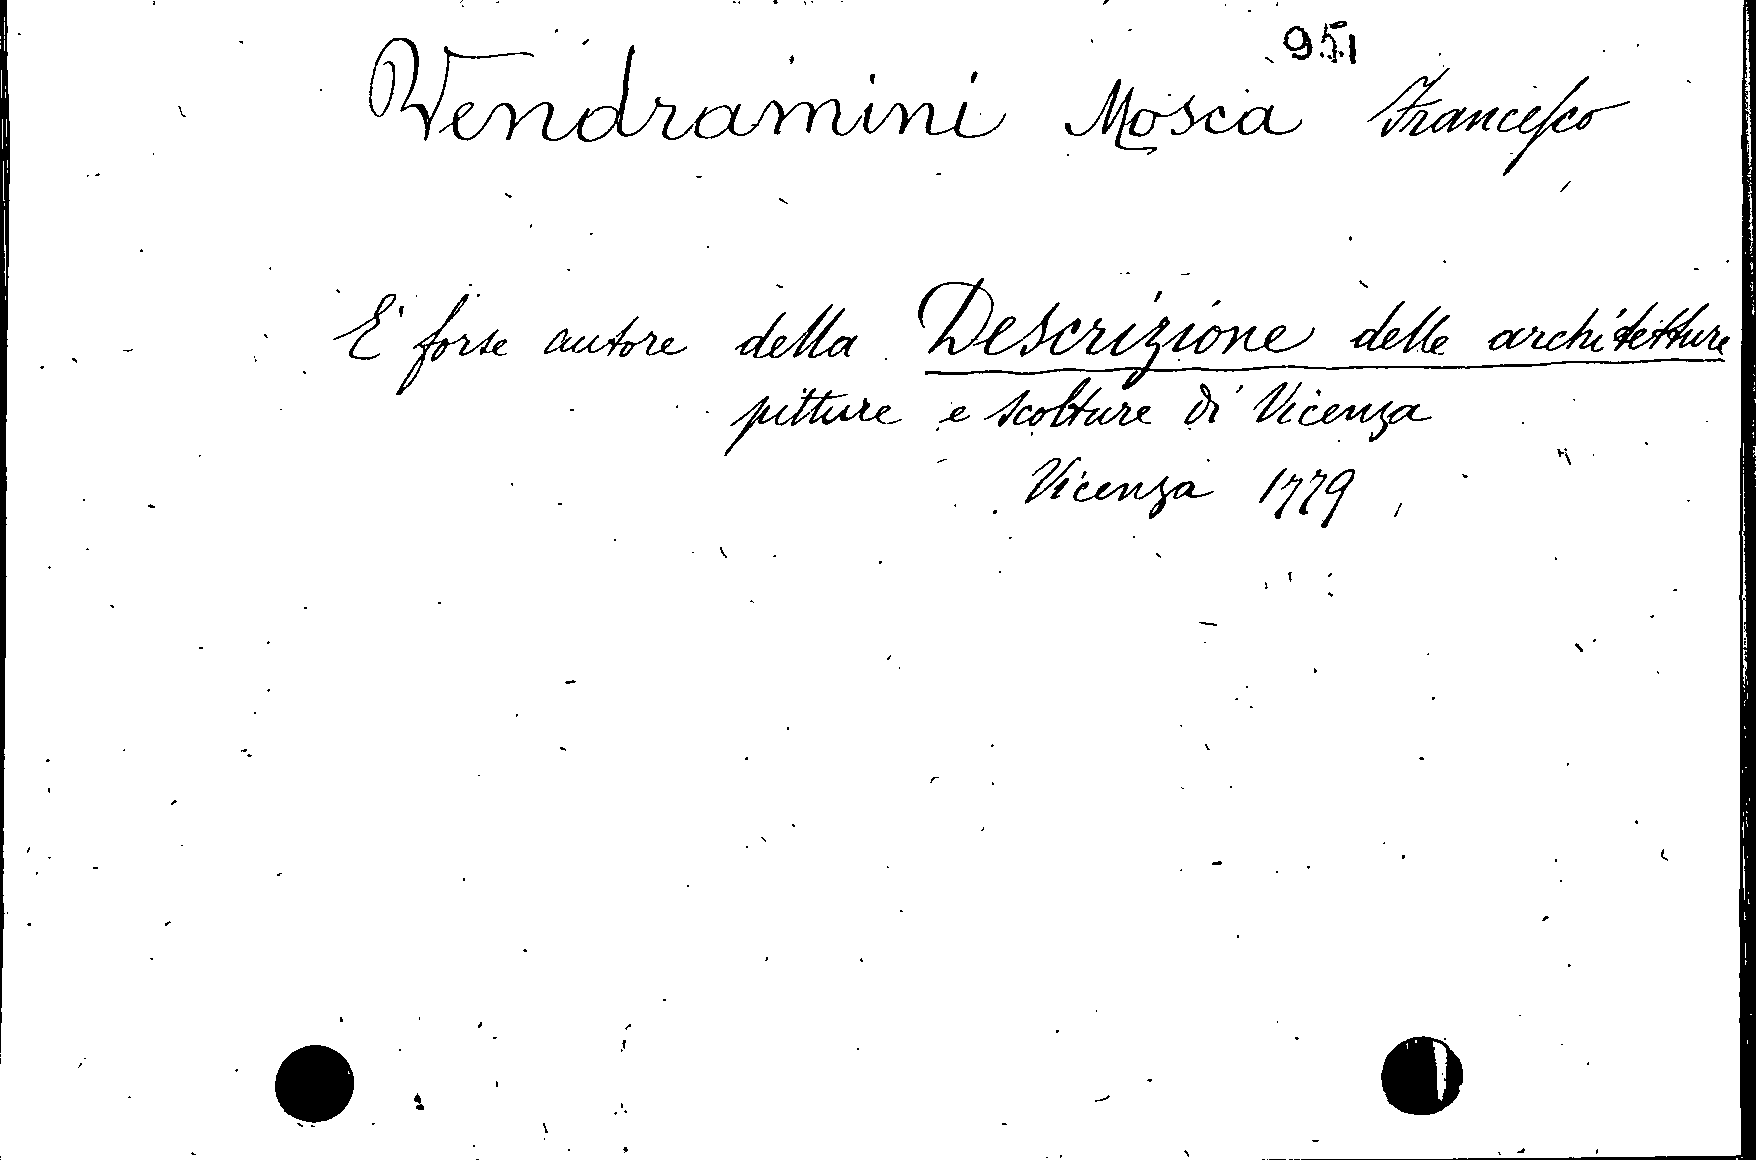 951
Vendramini Mosca Francesco
E' forse autore della Descrizione delle architetture
pitture e scolture di Vicenza
Vicenza 1779